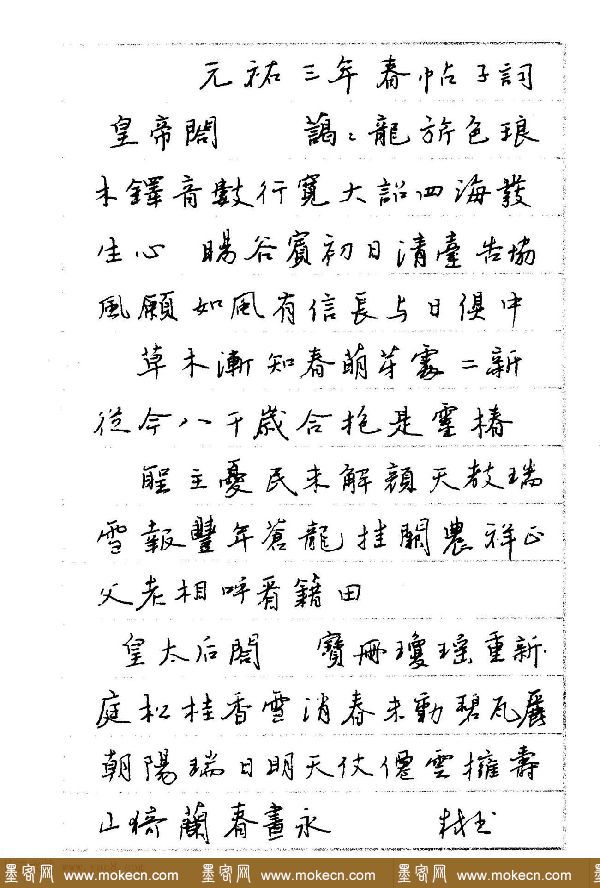 元祐三年春帖子詞
皇帝閣 藹〻龍旂色琅
木鐸音數行寬大詔四海發
生心 暘谷賓初日清臺告協
風願如風有信長与日俱中
草木漸知春萌芽處二新
從今八千歲合抱是靈椿
聖主憂民未解顏天教瑞
雪報豐年蒼龍挂闕農祥正
父老相呼看籍田
皇太后閣 寶冊瓊瑤重新
庭松桂香雪消春未動碧瓦麗
朝陽瑞日明天仗僊雲擁壽
山猗蘭春晝永
墨客网 www.mokecn.com 墨客网 www.mokecn.com 墨客网 www.mokecn.com